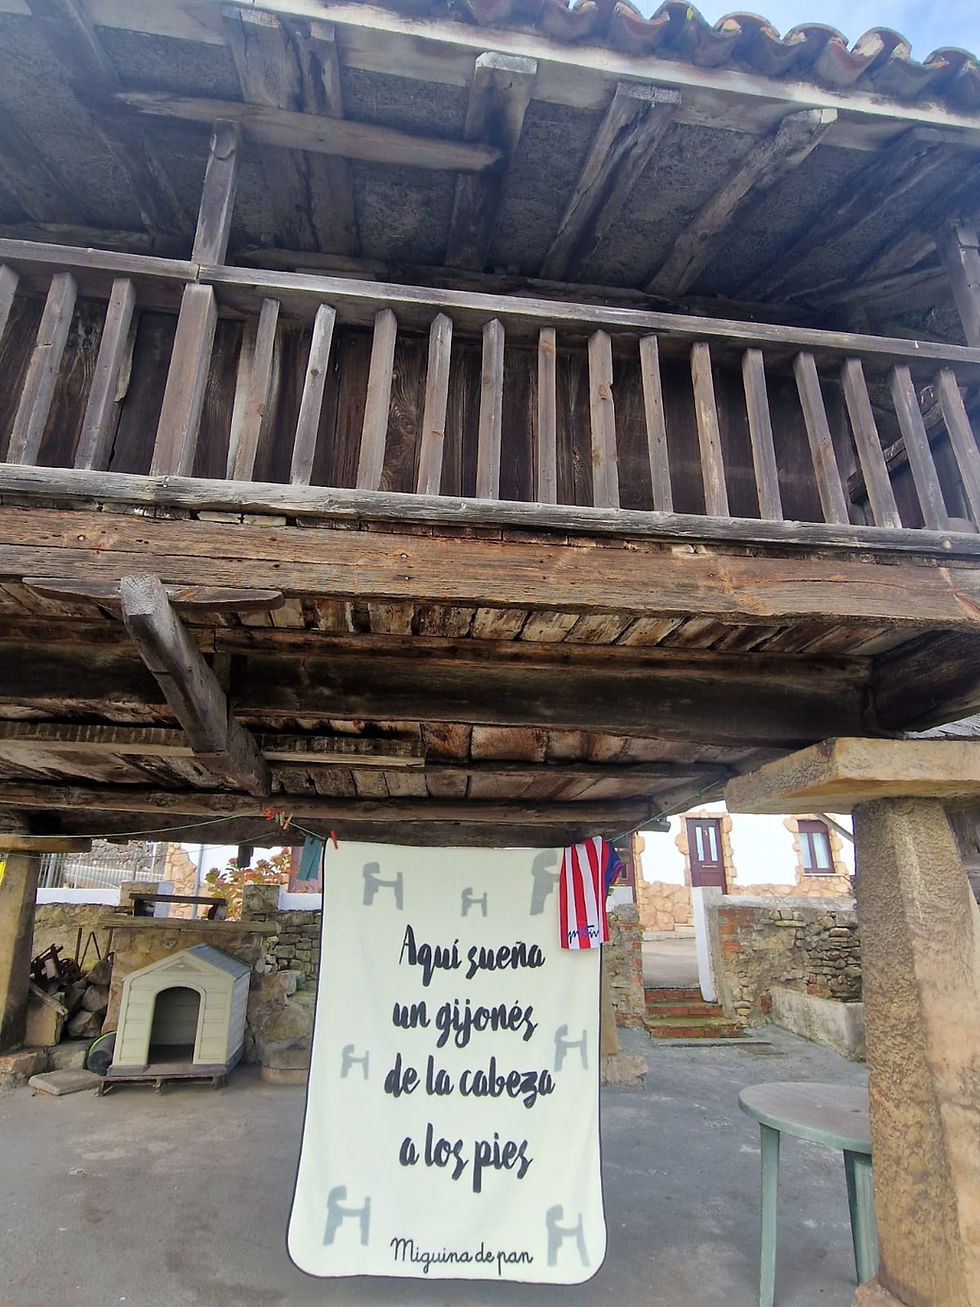 Aquí sueña
un gijonés
de la cabeza
a los pies
Miguina de pan